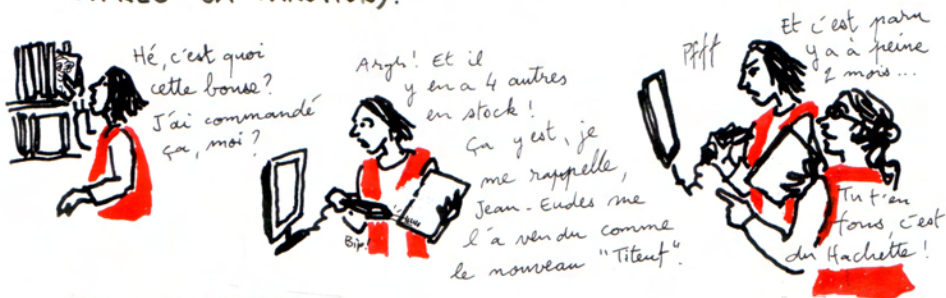 Hé, c'est quoi
cette bouse?
J'ai commandé
ça, moi?
Argh! Et il
y en a 4 autres
en stock!
Ça y est, je
me rappelle,
Jean-Eudes me
l'a vendu comme
le nouveau "Titeuf".
Bip!
Pfff
Et c'est paru
y a à peine
2 mois...
Tu t'en
fous, c'est
du Hachette!